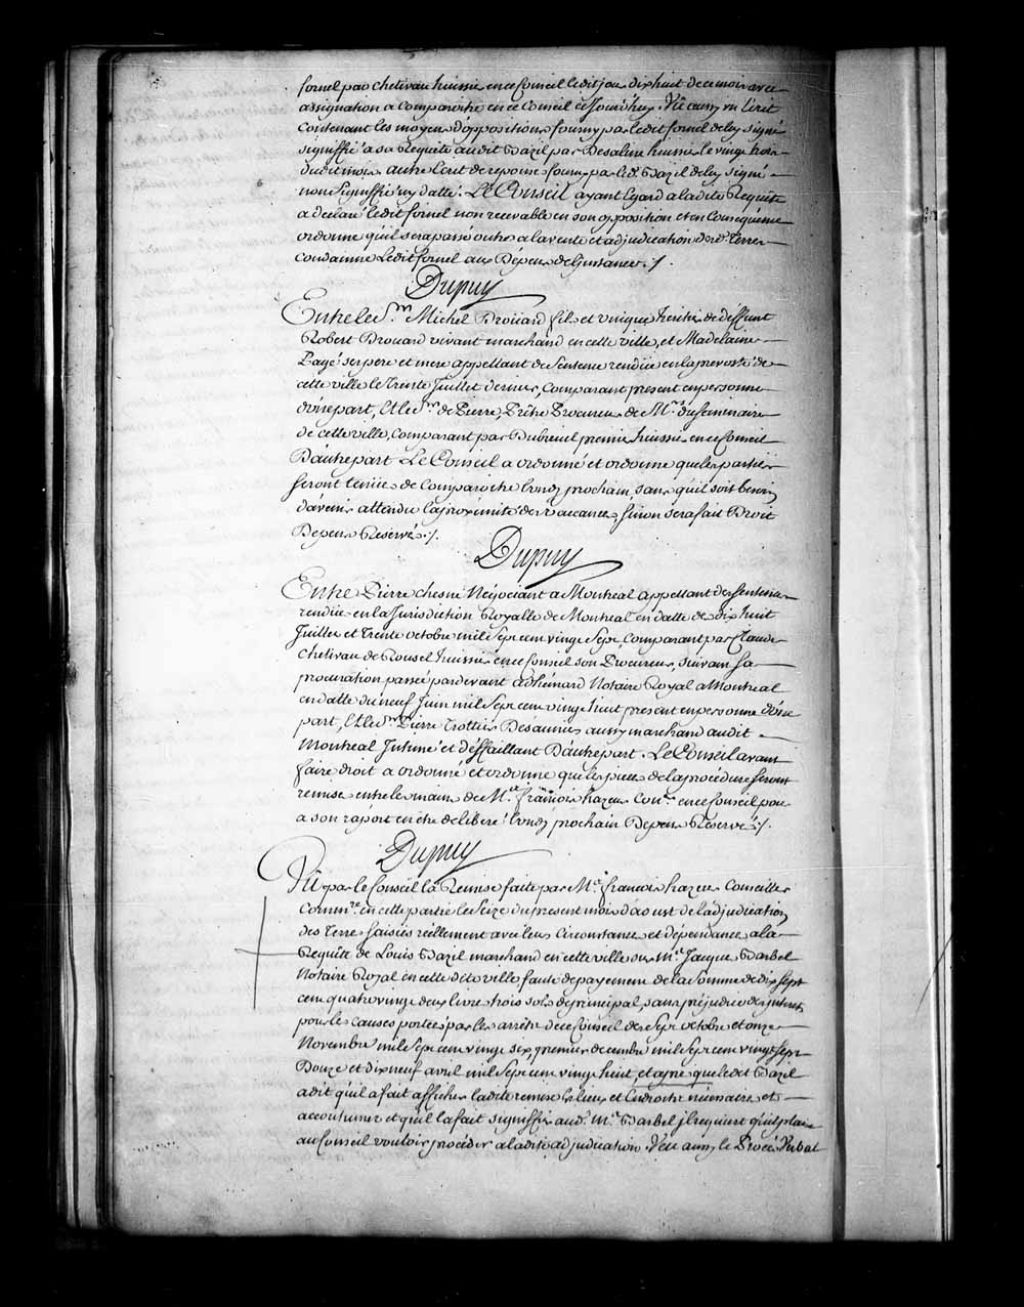 fornel par chetivau huissier en ce Conseil ledit jour dix huit de ce mois avec
assignation a Comparoitre en ce Conseil cejourd'huy. Vû aussy un Ecrit
Contenant les moyens d'opposition fourny par ledit fornel de luy signé
signiffié a sa Requête audit Bazil par Desaline huissier le vingt
dudit mois autre Ecrit de reponse fourny par led. Bazil de luy signé
non signiffié ny datté. Le Conseil ayant Egard a ladite Requête
a declaré ledit fornel non recevable en son opposition et en Consequence
ordonne qu'il sera passé outre a la vente et adjudication desd. terres
Condamne Ledit fornel aux Dépens de L'instance ./.
Dupuy
Entre le Sr. Michel Brouard fils et unique heritier de deffunt
Robert Drouard vivant marchand en cette ville, et Madelaine
Pagé ses pere et mere appellant de Sentence rendüe en la prevosté de
cette ville le trente Juillet dernier, Comparant present en personne
d'une part, Et le Sr. de Pierre, Prêtre Procureur de Mrs. du Seminaire
de cette ville, Comparant par Dubreuil premier huissier en ce Conseil
D'autre part Le Conseil a ordonné et ordonne que les parties
seront tenües de Comparoitre lundy prochain, sans qu'il soit besoin
d'avenir attendu la proximité des vaccances, sinon sera fait Droit
Depens Reservés ./.
Dupuy
Entre Pierre chesne Négociant a Montreal appellant des Sentences
rendües en la Jurisdiction Royalle de Montreal en datte des dix huit
Juillet et trente octobre mil Sept cent vingt Sept, Comparant par Claude
Chetivau de Rousel huissier en ce Conseil son Procureur, suivant sa
procuration passée pardevant adhémard Notaire Royal a Montreal
en datte du neuf Juin mil Sept cent vingt huit present en personne d'une
part, Et le Sr. Pierre trottier Desaunier aussy marchand audit
Montreal Intimé et déffaillant D'autre part. Le Conseil avant
faire droit a ordonné et ordonne que les pieces de la procédure seront
remises entre les mains de Me. françois hazeur Conr. en ce Conseil pour
a son raport en être deliberé lundy prochain Depens Reservés ./.
Dupuy
Vû par le Conseil la Remise faite par Me. françois hazeur Conseiller
Commre. en cette partie le Seize du present mois d'aoust de l'adjudication
des terres saisies réellement avec leurs Circonstances et dépendances a la
Requête de Louis Bazil marchand en cette ville sur Me. Jacques Barbel
Notaire Royal en cette dite ville faute de payement de la Somme de dix sept
cent quatre vingt deux livres trois sols de principal, sans préjudice des interets
pour les causes portées par les arrêts de ce Conseil des Sept octobre et onze
Novembre mil Sept cent vingt six, premier decembre mil Sept cent vingt sept
Douze et dix neuf avril mil Sept cent vingt huit, et apré que ledit Bazil
a dit qu'il a fait afficher ladite remise es lieux et Endroits nécessaires et
accoutumés et qu'il l'a fait signiffier aud. Me. Barbel il requiert qu'il plaise
au Conseil vouloir procéder a ladite adjudication. Veu aussy le Procés Verbal